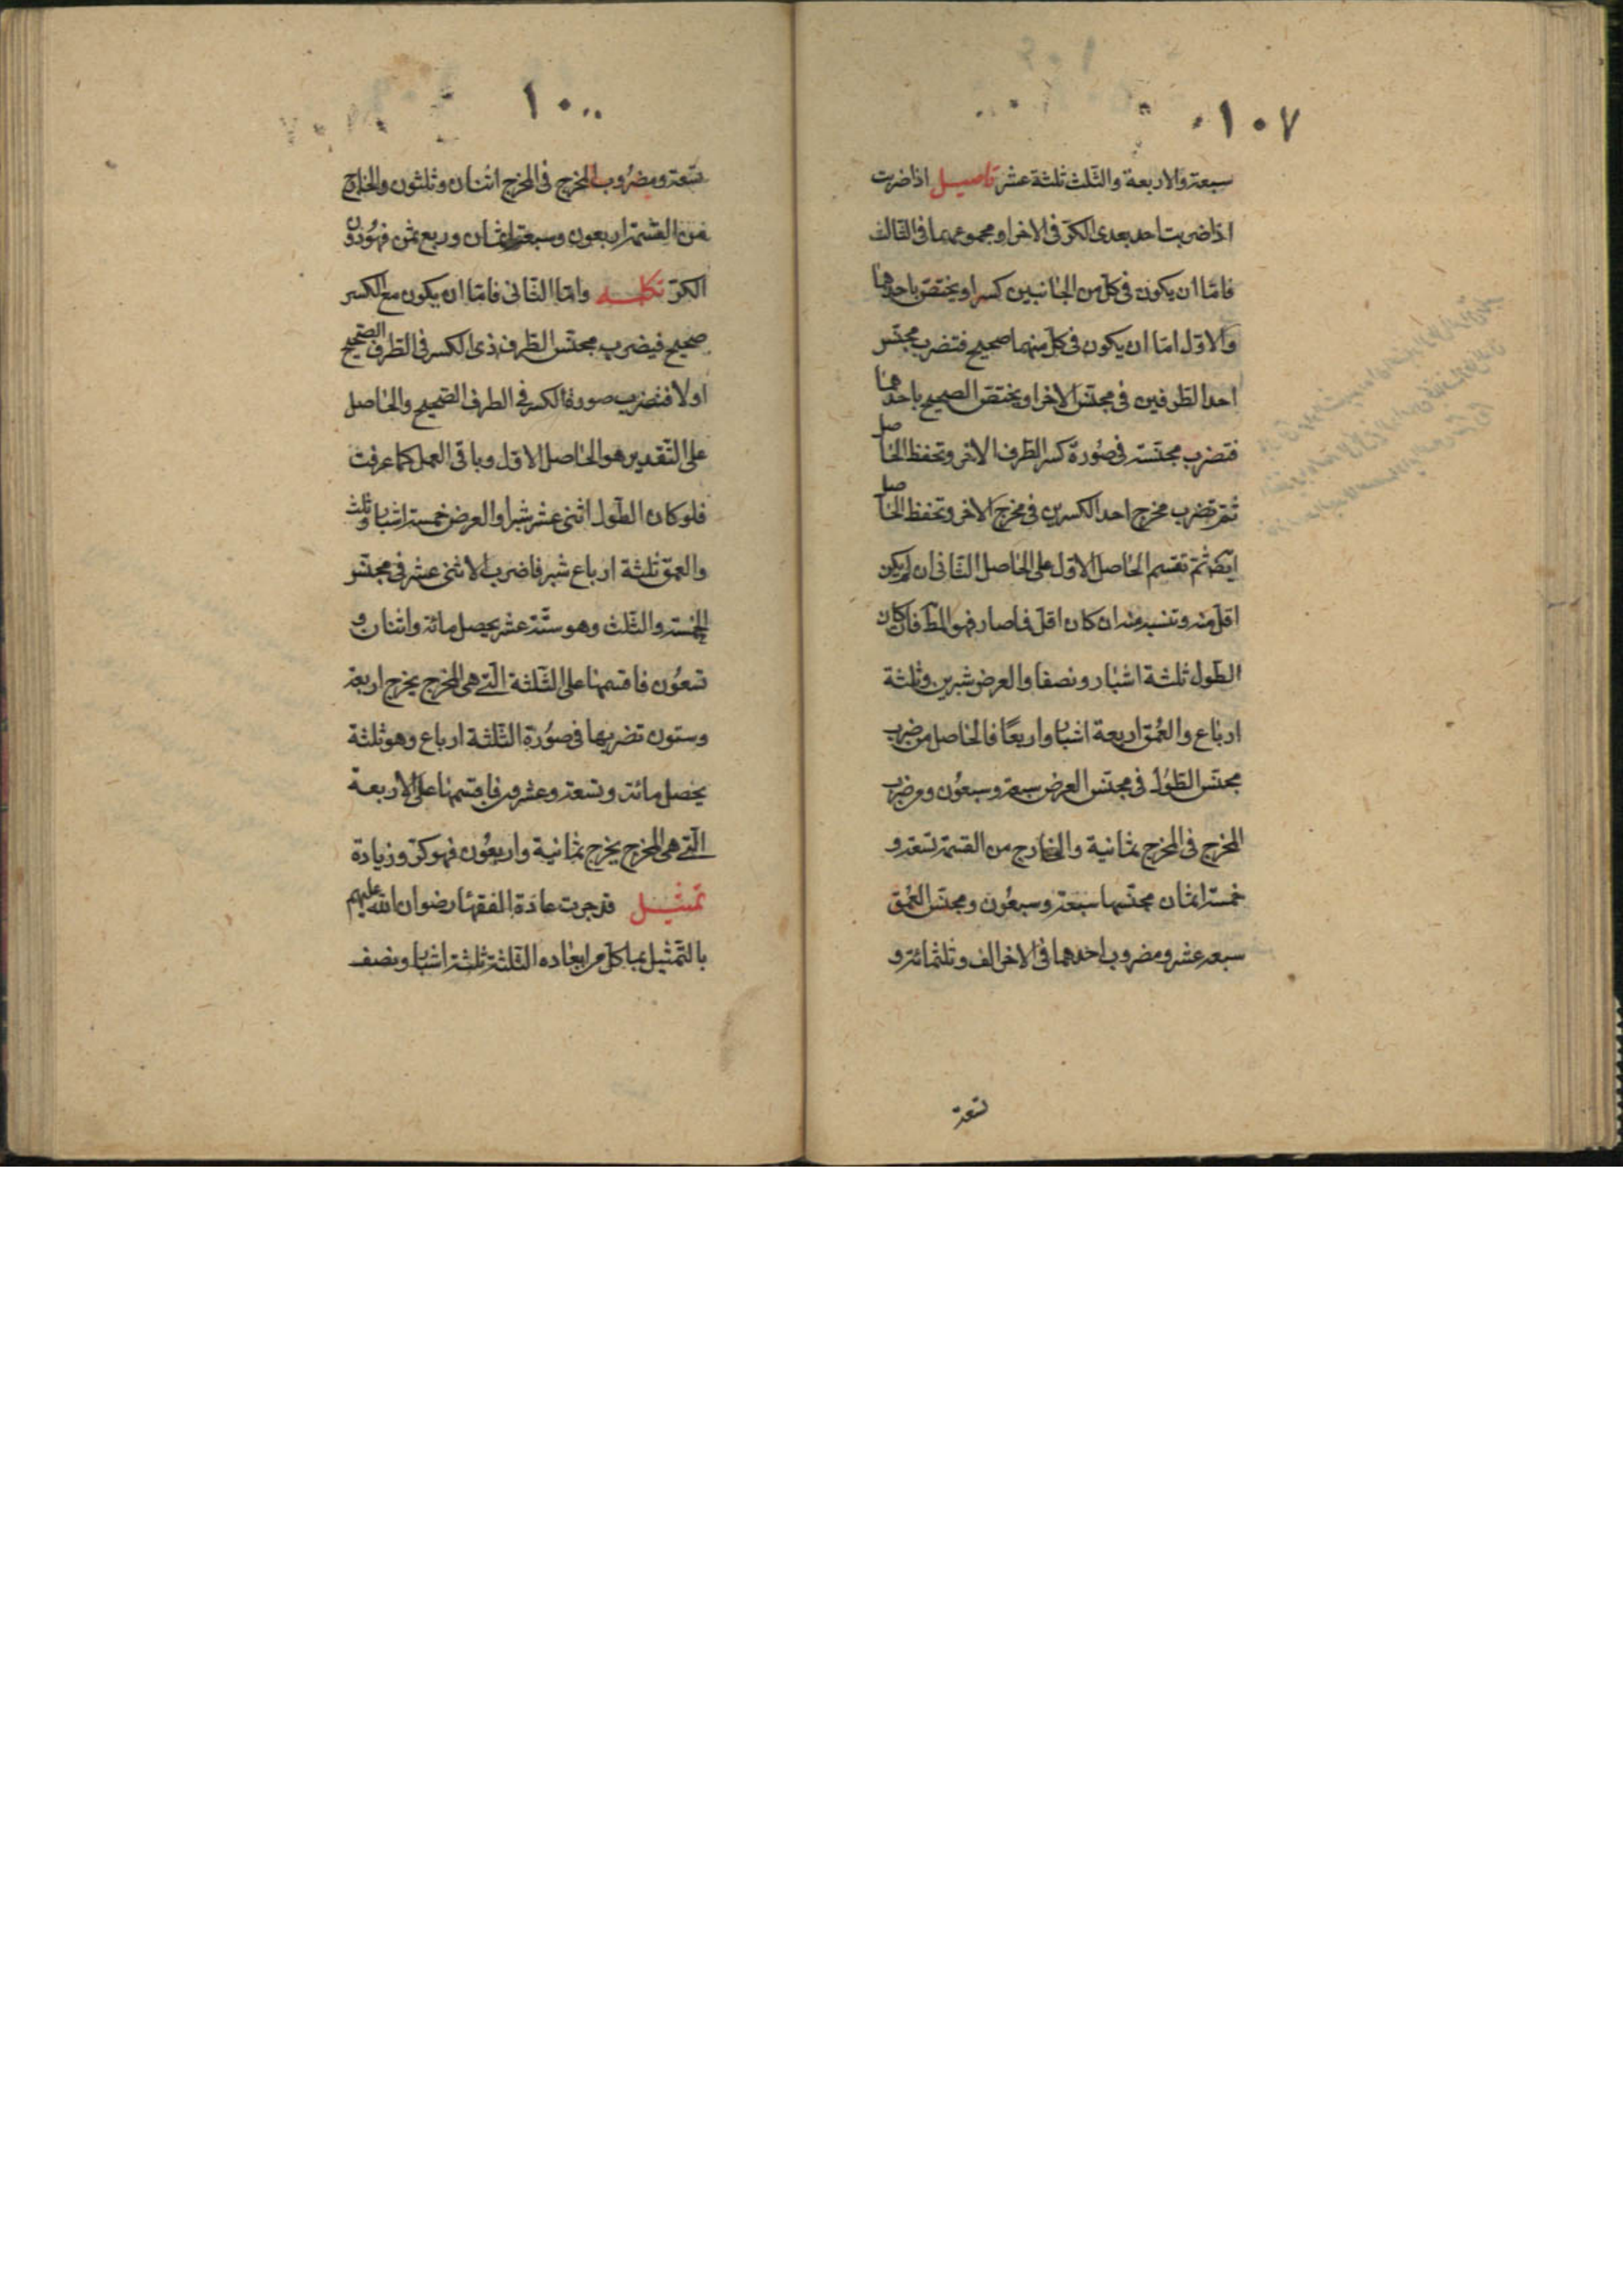 ١٠٧
سبعة والاربعة والثلث ثلثة عشر تاصيل اذا ضربت
اذا ضربت احد بعدى الكر فى الاخر او مجموعهما فى الثالث
فامّا ان يكون فى كل من الجانبين كسر او يختص باحدهما
والاوّل امّا ان يكون فى كل منهما صحيح فتضرب مجنّس
احد الطرفين فى مجنّس الاخر او يختص الصحيح باحدهما
فتضرب مجنّسه فى صورة كسر الطرف الاخر وتحفظ الحاصل
ثم تضرب مخرج احد الكسرين فى مخرج الاخر وتحفظ الحاصل
ايضا ثم تقسم الحاصل الاوّل على الحاصل الثانى ان لم يكن
اقل منه وتنسبه منه ان كان اقل فما صار فهو المط فان كان
الطول ثلثة اشبار ونصفا والعرض شبرين وثلثة
ارباع والعمق اربعة اشبار واربعًا فالحاصل من ضرب
مجنّس الطول فى مجنّس العرض سبعة وسبعون ومن ضرب
المخرج فى المخرج ثمانية والخارج من القسمة تسعة و
خمسة اثمان مجنّسها سبعة وسبعون ومجنّس العمق
سبعة عشر ومضروب احدهما فى الاخر الف وثلثمائة و
تسعة
١٠
تسعة ومضروب المخرج فى المخرج اثنان وثلثون والخارج
من القسمة اربعون وسبعة اثمان وربع ثمن فهو دون
الكر تكمله وامّا الثانى فامّا ان يكون مع الكسر
صحيح فيضرب مجنّس الطرف ذى الكسر فى الطرف الصحيح
اولا فتضرب صورة الكسر فى الطرف الصحيح والحاصل
على التقديرين هو الحاصل الاوّل وباقى العمل كما عرفت
فلو كان الطول اثنى عشر شبرا والعرض خمسة اشبار وثلث
والعمق ثلثة ارباع شبر فاضرب الاثنى عشر فى مجنّس
الخمسة والثلث وهو ستّة عشر يحصل مائة واثنان و
تسعون فاقسمها على الثلثة التى هى المخرج يخرج اربعة
وستون تضربها فى صورة الثلثة ارباع وهو ثلثة
يحصل مائة وتسعة وعشرون فاقسمها على الاربعة
التى هى المخرج يخرج ثمانية واربعون فهو كر وزيادة
تمثيل قد جرت عادة الفقهاء رضوان الله عليهم
بالتمثيل بما كل من ابعاده الثلثة ثلثة اشبار ونصف